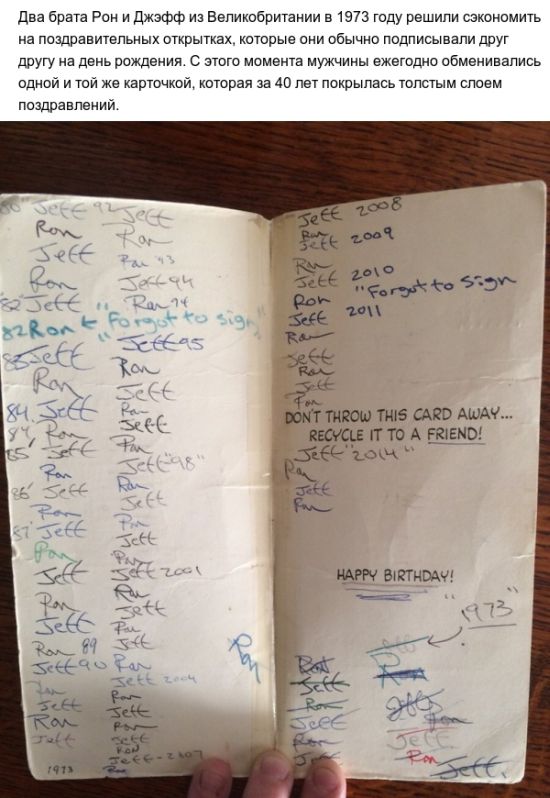 Два брата Рон и Джэфф из Великобритании в 1973 году решили сэкономить
на поздравительных открытках, которые они обычно подписывали друг
другу на день рождения. С этого момента мужчины ежегодно обменивались
одной и той же карточкой, которая за 40 лет покрылась толстым слоем
поздравлений.
80 Jeff 92 Jeff
Ron Ron
Jeff Ron '93
Ron Jeff 94
"82" Jeff Ron 94
82 Ron "Forgot to sign"
Jeff 95
83 Jeff Ron
Ron Jeff
84 Jeff Ron
84' Ron Jeff
85' Jeff Ron
Ron Jeff "98"
86' Jeff Ron
Ron Jeff
87' Jeff Ron
Ron Jeff
Jeff Ron
Ron Jeff 2001
Jeff Ron
Ron 89 Jeff
Jeff 90 Ron
Ron Jeff
Jeff Ron
Ron Jeff 2004
Jeff Ron
1973 Jeff
Ron
Jeff
RON
Jeff - 2007
Ron
Jeff 2008
Ron
Jeff 2009
Ron
Jeff 2010
Ron "Forgot to sign
Jeff 2011
Ron
Jeff
Ron
Jeff
Ron
DON'T THROW THIS CARD AWAY...
RECYCLE IT TO A FRIEND!
Jeff "2014"
Ron
Jeff
Ron
HAPPY BIRTHDAY!
"1973"
Ron
Ron
Jeff
Ron Jeff
Jeff Ron
Ron Jeff
Jeff Ron
Jeff.